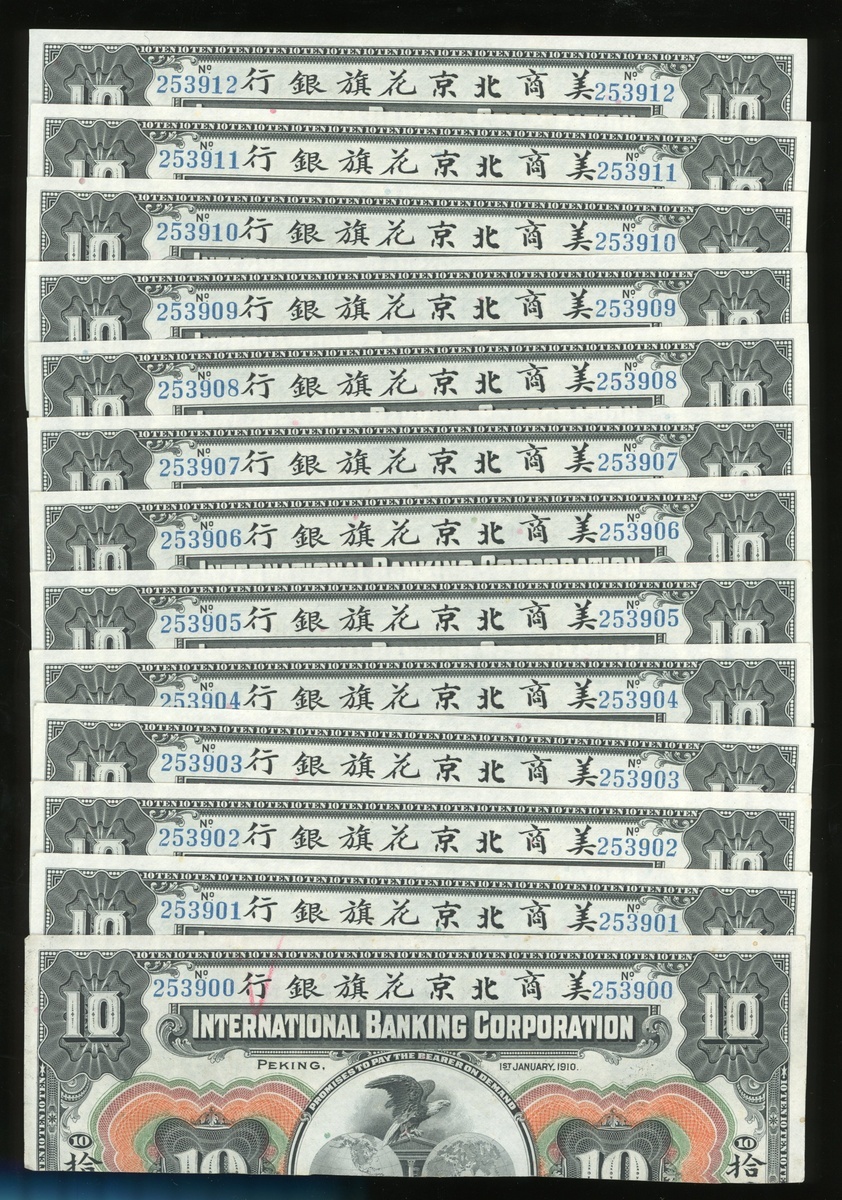 10TEN10TEN10TEN10TEN10TEN10TEN10TEN10TEN10TEN10TEN10TEN10TEN
Nº 253912 行銀旗花京北商美 Nº 253912
10 10
Nº 253911 行銀旗花京北商美 Nº 253911
10 10
Nº 253910 行銀旗花京北商美 Nº 253910
10 10
Nº 253909 行銀旗花京北商美 Nº 253909
10 10
Nº 253908 行銀旗花京北商美 Nº 253908
10 10
Nº 253907 行銀旗花京北商美 Nº 253907
10 10
Nº 253906 行銀旗花京北商美 Nº 253906
10 INTERNATIONAL BANKING CORPORATION 10
Nº 253905 行銀旗花京北商美 Nº 253905
10 10
Nº 253904 行銀旗花京北商美 Nº 253904
10 10
Nº 253903 行銀旗花京北商美 Nº 253903
10 10
Nº 253902 行銀旗花京北商美 Nº 253902
10 10
Nº 253901 行銀旗花京北商美 Nº 253901
10 10
Nº 253900 行銀旗花京北商美 Nº 253900
10 INTERNATIONAL BANKING CORPORATION 10
PEKING, 1ST JANUARY, 1910.
PROMISES TO PAY THE BEARER ON DEMAND
10 10 10 10
拾 拾